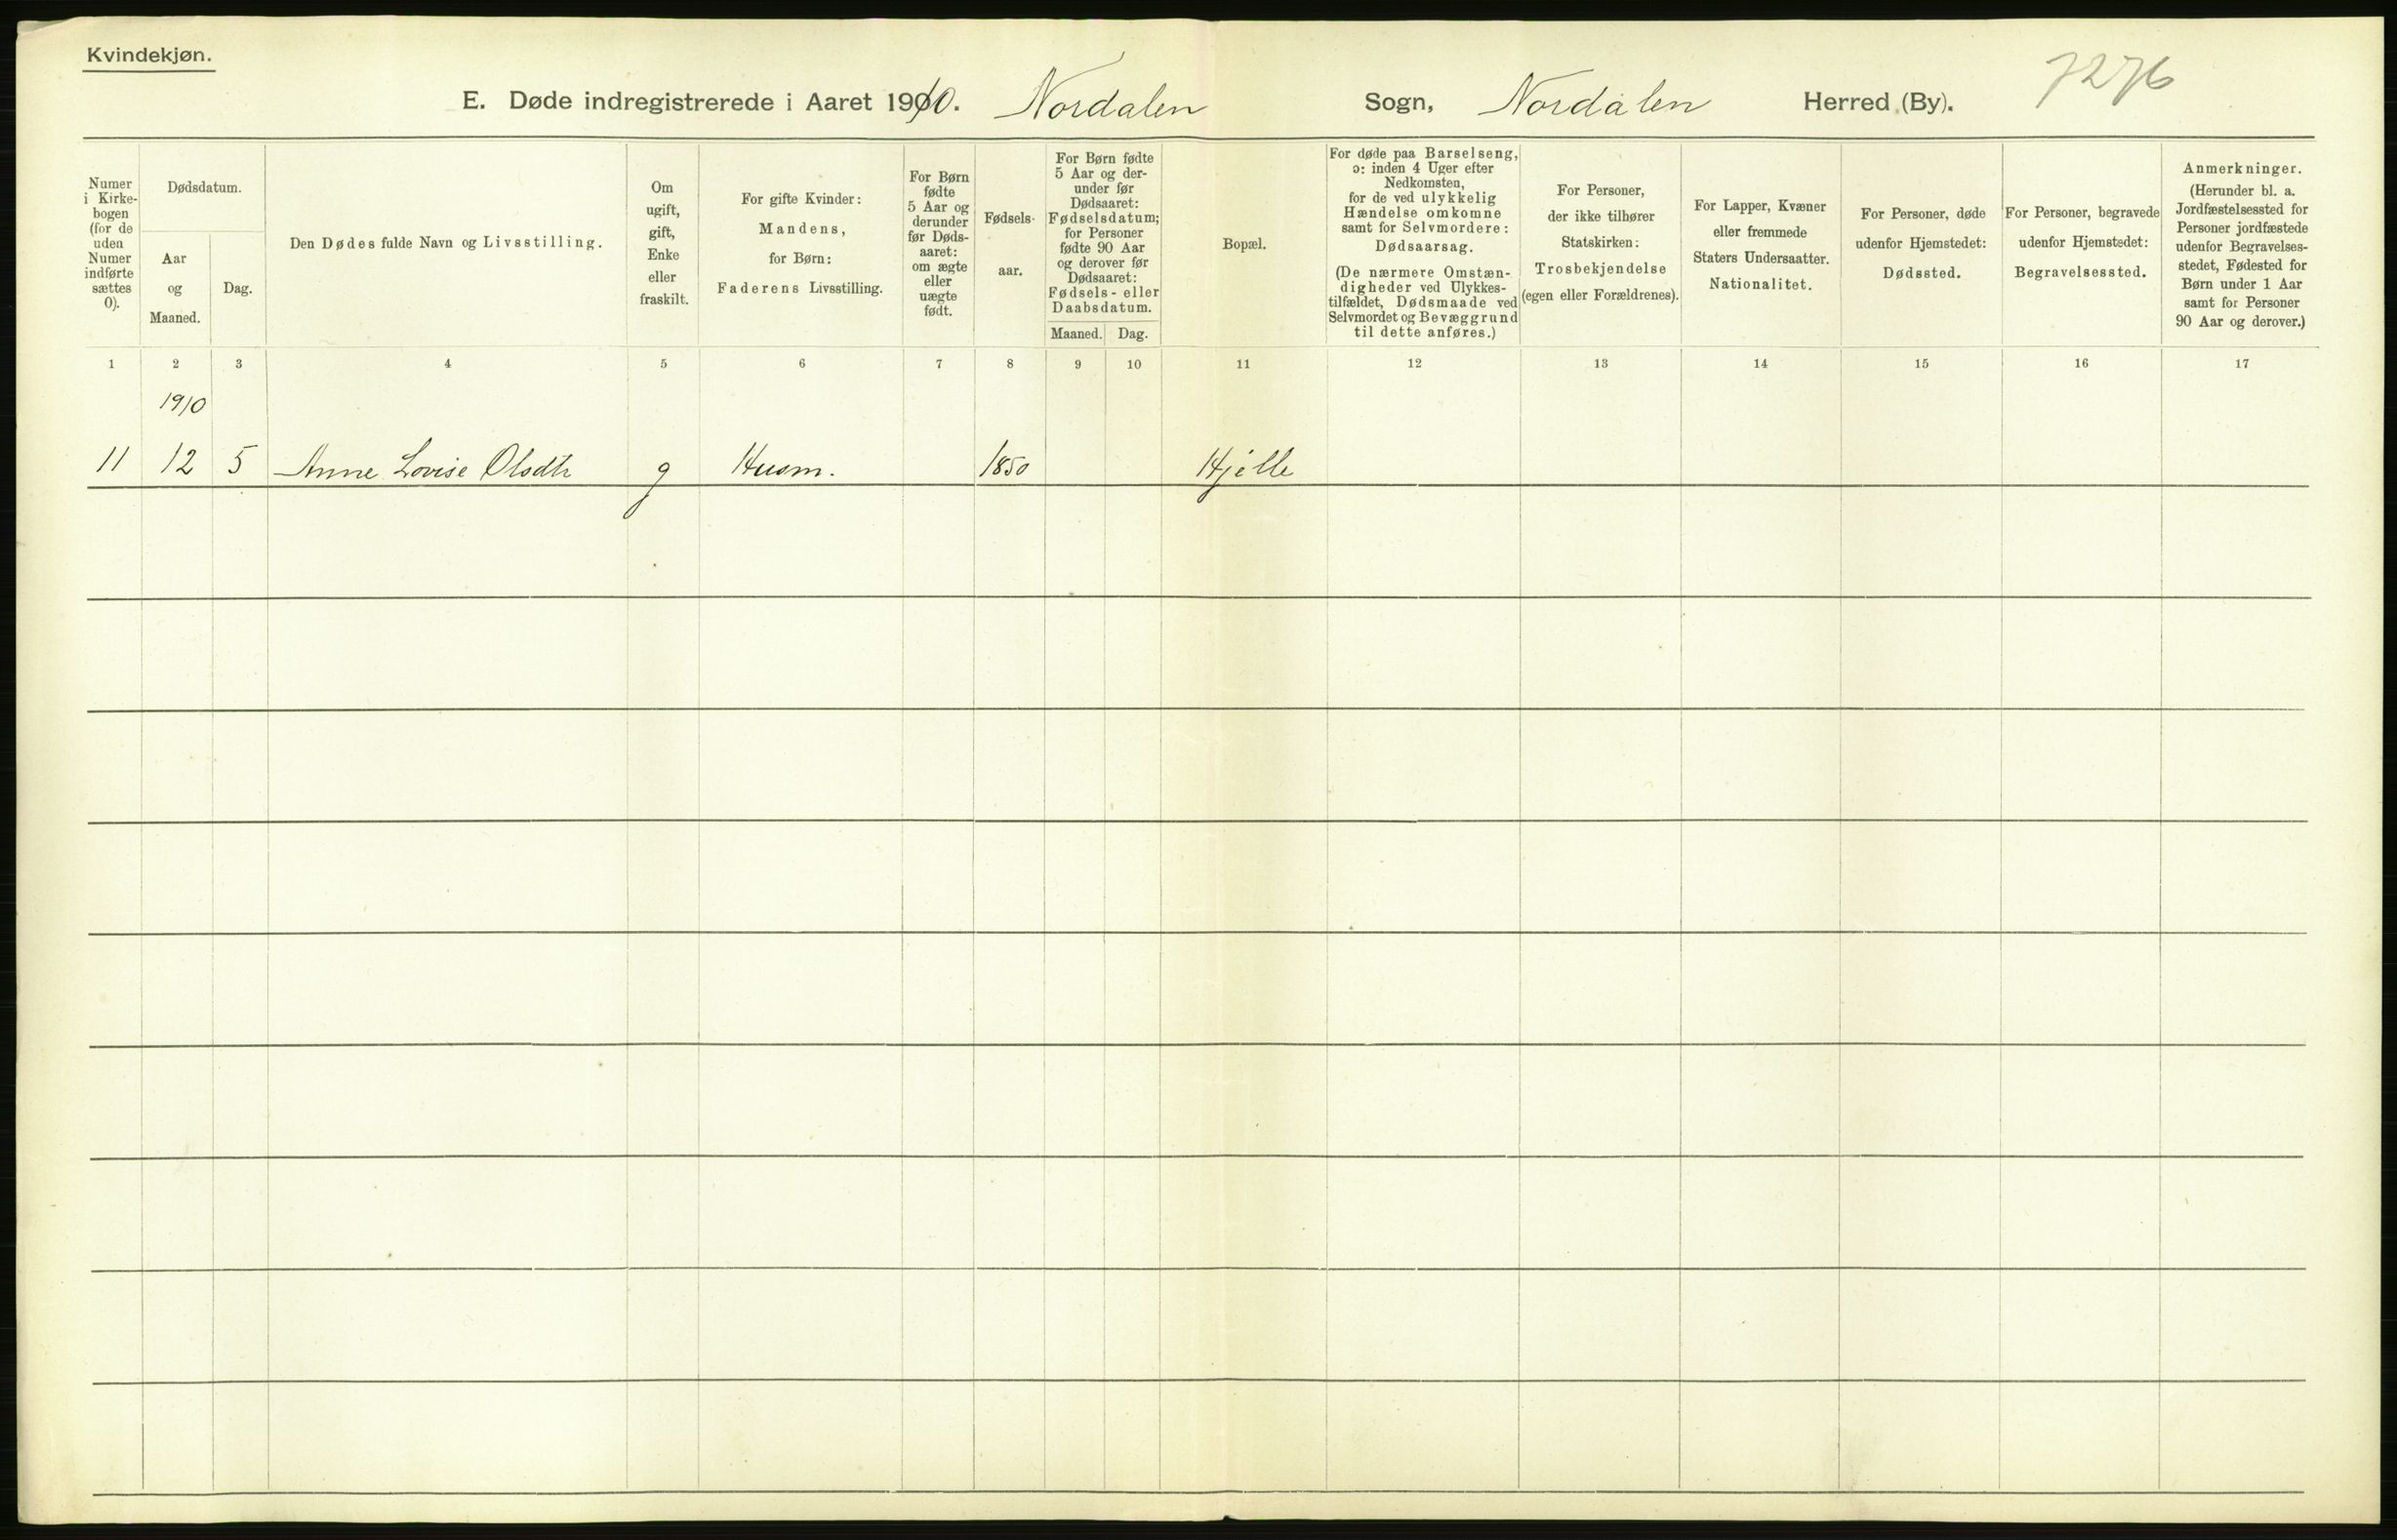 Kvindekjøn.
7276
E. Døde indregistrerede i Aaret 1910. Nordalen Sogn, Nordalen Herred (By).
Numer
i Kirke-
bogen
(for de
uden
Numer
indførte
sættes
0).
Dødsdatum.
Aar
og
Maaned.
Dag.
Den Dødes fulde Navn og Livsstilling.
Om
ugift,
gift,
Enke
eller
fraskilt.
For gifte Kvinder:
Mandens,
for Børn:
Faderens Livsstilling.
For Børn
fødte
5 Aar og
derunder
før Døds-
aaret:
om ægte
eller
uægte
født.
Fødsels-
aar.
For Børn fødte
5 Aar og der-
under før
Dødsaaret:
Fødselsdatum;
for Personer
fødte 90 Aar
og derover før
Dødsaaret:
Fødsels- eller
Daabsdatum.
Maaned. Dag.
Bopæl.
For døde paa Barselseng,
ɔ: inden 4 Uger efter
Nedkomsten,
for de ved ulykkelig
Hændelse omkomne
samt for Selvmordere:
Dødsaarsag.
(De nærmere Omstæn-
digheder ved Ulykkes-
tilfældet, Dødsmaade ved
Selvmordet og Bevæggrund
til dette anføres.)
For Personer,
der ikke tilhører
Statskirken:
Trosbekjendelse
(egen eller Forældrenes).
For Lapper, Kvæner
eller fremmede
Staters Undersaatter.
Nationalitet.
For Personer, døde
udenfor Hjemstedet:
Dødssted.
For Personer, begravede
udenfor Hjemstedet:
Begravelsessted.
Anmerkninger.
(Herunder bl. a.
Jordfæstelsessted for
Personer jordfæstede
udenfor Begravelses-
stedet, Fødested for
Børn under 1 Aar
samt for Personer
90 Aar og derover.)
1 2 3 4 5 6 7 8 9 10 11 12 13 14 15 16 17
1910
11 12 5 Anne Lovise Olsdtr g Husm. 1850 Hjelle